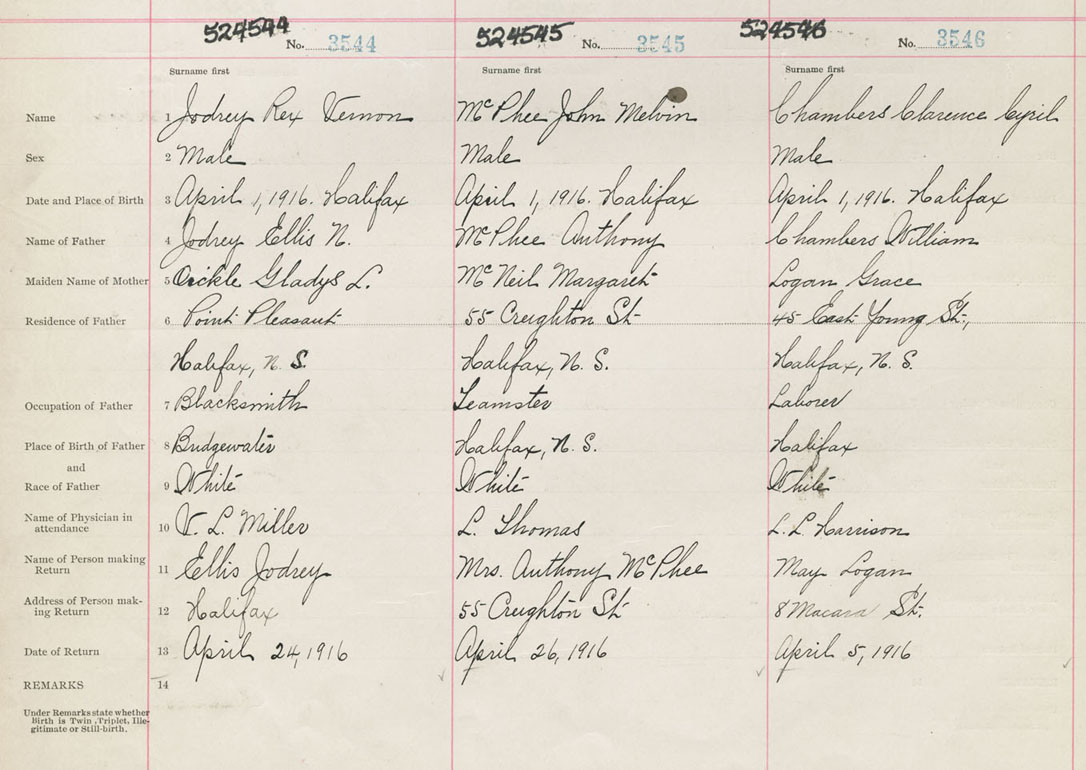 524544 No. 3544 524545 No. 3545 524546 No. 3546
Surname first Surname first Surname first
Name 1 Jodrey Rex Vernon McPhee John Melvin Chambers Clarence Cyril
Sex 2 Male Male Male
Date and Place of Birth 3 April 1, 1916. Halifax April 1, 1916. Halifax April 1, 1916. Halifax
Name of Father 4 Jodrey Ellis N. McPhee Anthony Chambers William
Maiden Name of Mother 5 Oickle Gladys L. McNeil Margaret Logan Grace
Residence of Father 6 Point Pleasant 55 Creighton St 45 East Young St.,
Halifax, N. S. Halifax, N. S. Halifax, N. S.
Occupation of Father 7 Blacksmith Teamster Laborer
Place of Birth of Father 8 Bridgewater Halifax, N. S. Halifax
and
Race of Father 9 White White White
Name of Physician in
attendance 10 V. L. Miller L. Thomas L. L. Harrison
Name of Person making
Return 11 Ellis Jodrey Mrs. Anthony McPhee May Logan
Address of Person mak-
ing Return 12 Halifax 55 Creighton St 8 Macara St.
Date of Return 13 April 24, 1916 April 26, 1916 April 5, 1916
REMARKS 14
Under Remarks state whether
Birth is Twin, Triplet, Ille-
gitimate or Still-birth.